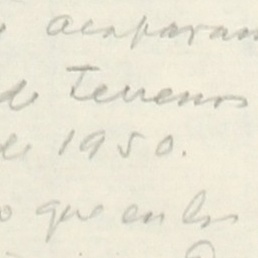 acaparam
de Terrenos
de 1950.
o que en los